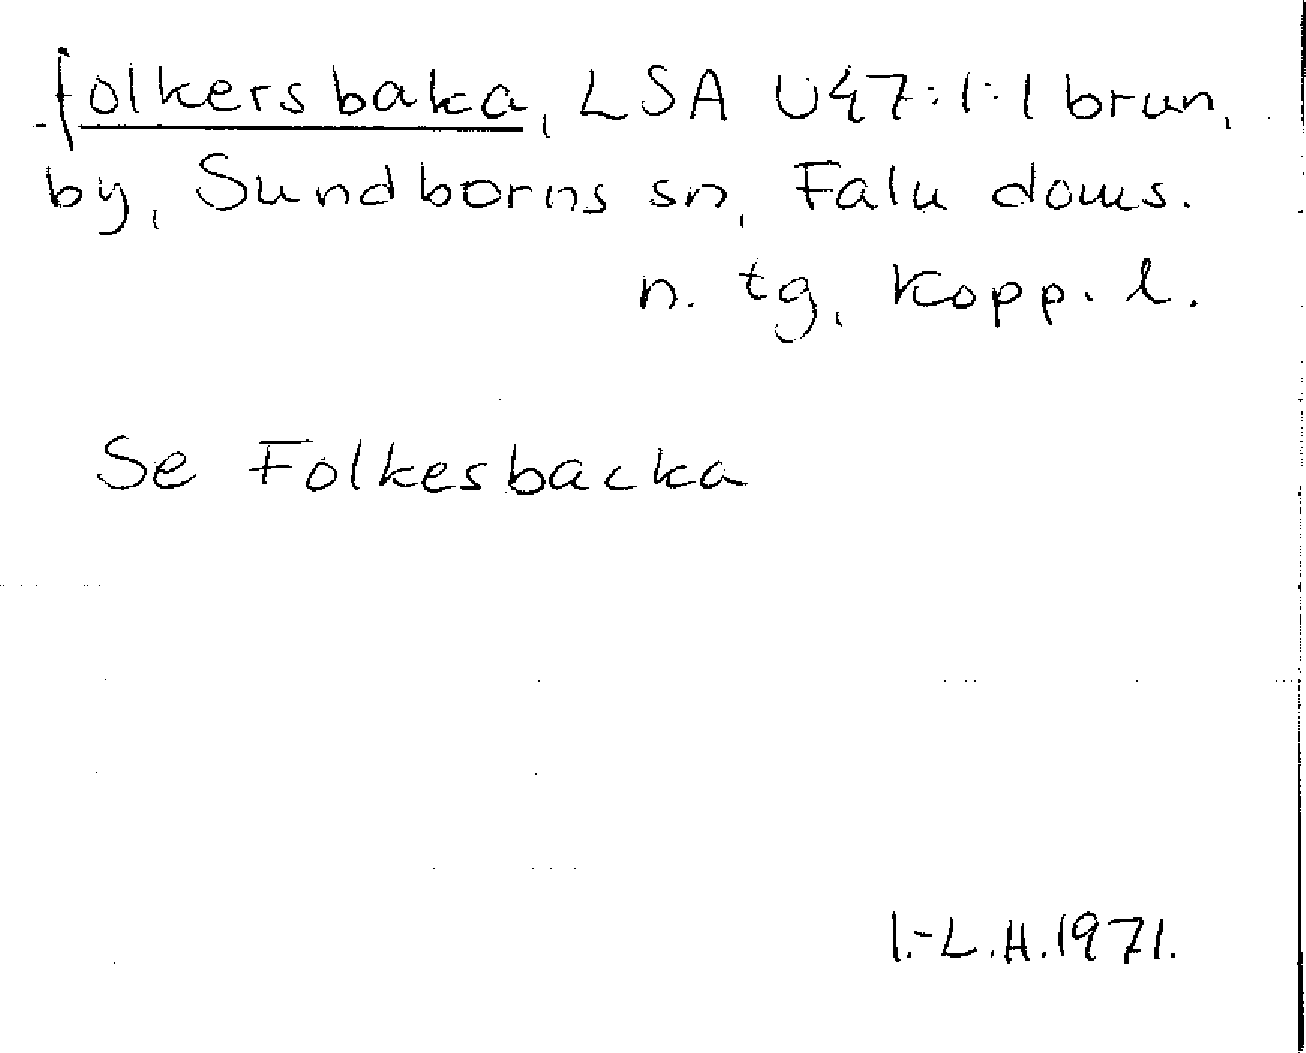 folkersbaka, LSA U47:1:1 brun,
by, Sundborns sn, Falu doms.
n. tg, Kopp. l.
Se Folkesbacka
I.-L.H.1971.